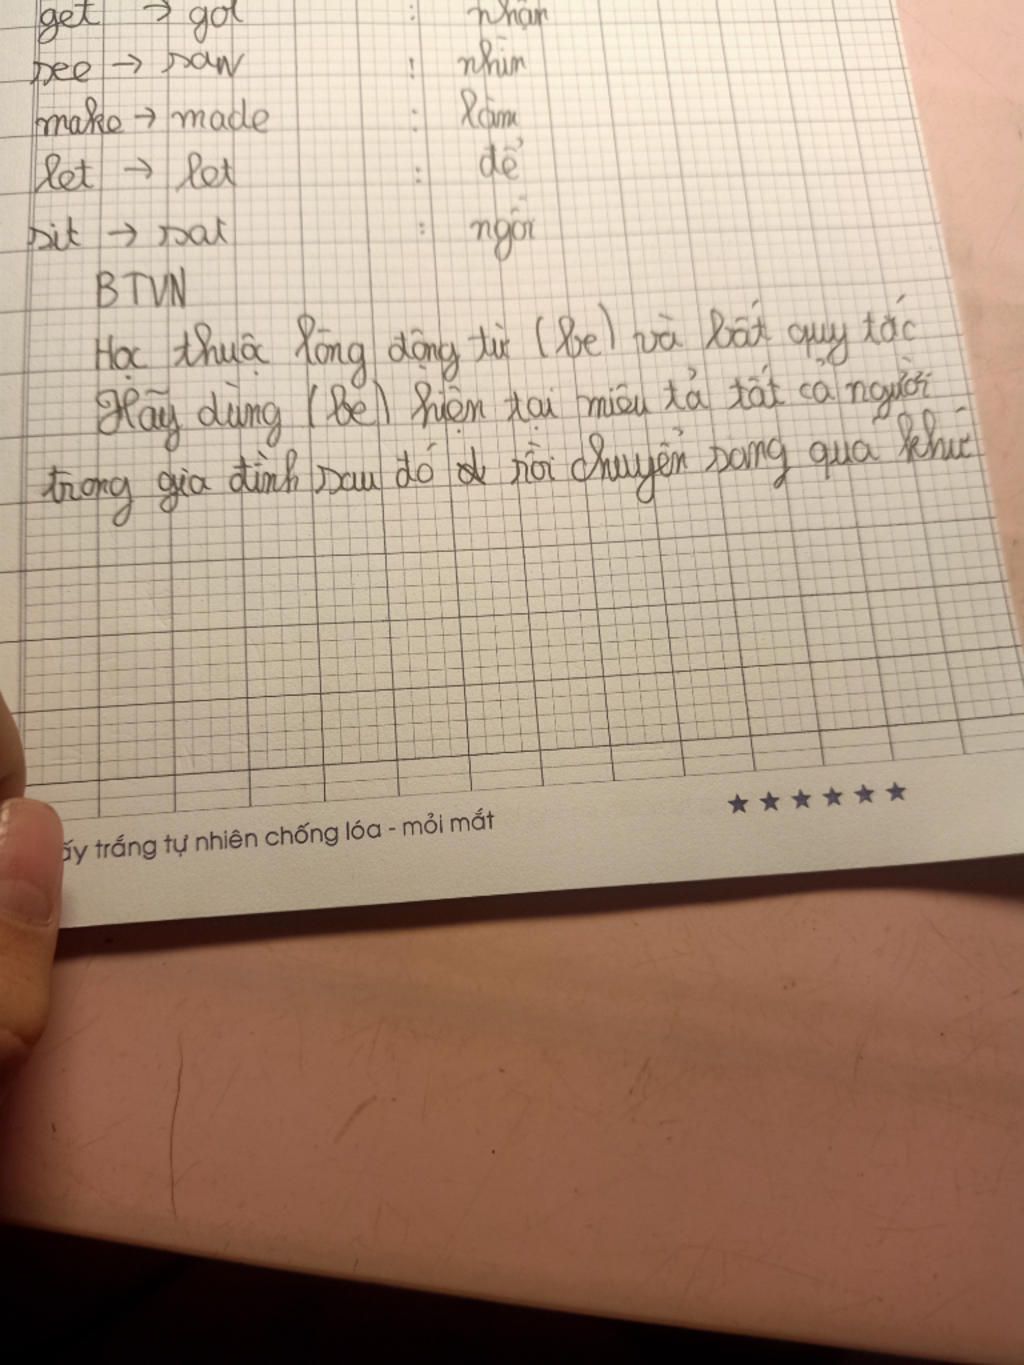 get → got : nhận
see → saw : nhìn
make → made : làm
let → let : để
sit → sat : ngồi
BTVN
Học thuộc lòng động từ (be) và bất quy tắc
Hãy dùng (be) hiện tại miêu tả tất cả người
trong gia đình sau đó rồi chuyển sang quá khứ
ấy trắng tự nhiên chống lóa - mỏi mắt